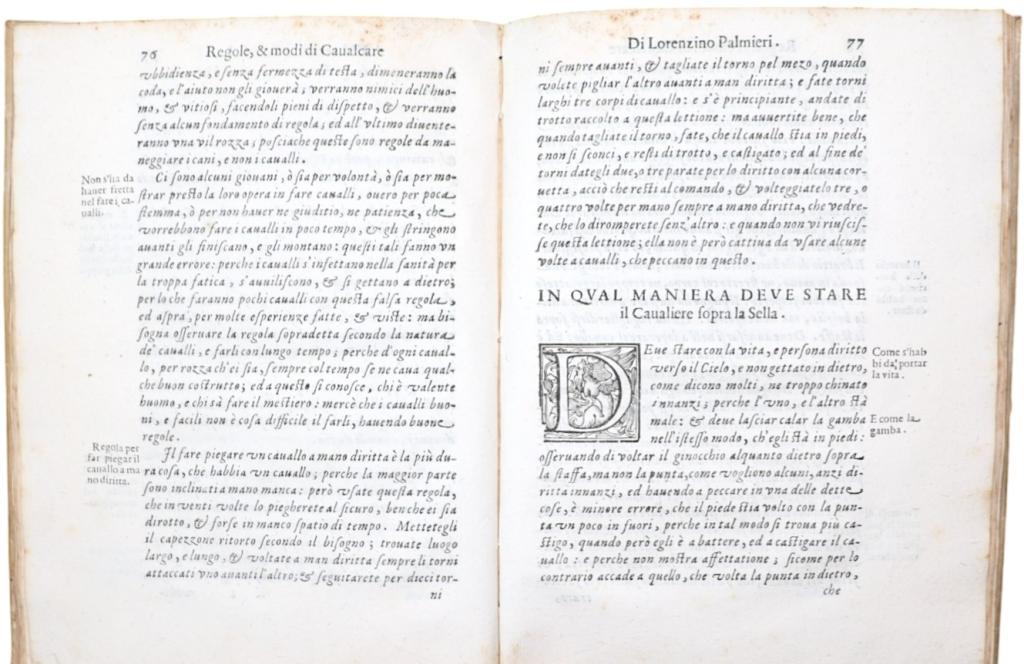 76 Regole, & modi di Caualcare
vbbidienza, e senza fermezza di testa, dimeneranno la
coda, e l'aiuto non gli giouerà; verranno nimici dell'huo-
mo, & vitiosi, facendoli pieni di dispetto, & verranno
senza alcun fondamento di regola; ed all'vltimo diuente-
ranno vna vil rozza; posciache queste sono regole da ma-
neggiare i cani, e non i caualli.
Non s'hà da
hauer fretta
nel fare i ca-
ualli.
Ci sono alcuni giouani, ò sia per volontà, ò sia per mo-
strar presto la loro opera in fare caualli, ouero per poca
flemma, ò per non hauer ne giuditio, ne patienza, che
vorrebbono fare i caualli in poco tempo, & gli stringono
auanti gli finiscano, e gli montano: questi tali fanno vn
grande errore: perche i caualli s'infettano nella sanità per
la troppa fatica, s'auniliscono, & si gettano a dietro;
per lo che faranno pochi caualli con questa falsa regola,
ed aspra, per molte esperienze fatte, & viste: ma bi-
sogna osseruare la regola sopradetta secondo la natura
de' caualli, e farli con lungo tempo; perche d'ogni caual-
lo, per rozza ch'ei sia, sempre col tempo se ne caua qual-
che buon costrutto; ed a questo si conosce, chi è valente
huomo, e chi sà fare il mestiero: mercè che i caualli buo-
ni, e facili non è cosa difficile il farli, hauendo buone
regole.
Regola per
far piegar il
cauallo a ma
no diritta.
Il fare piegare vn cauallo a mano diritta è la più du-
ra cosa, che habbia vn cauallo; perche la maggior parte
sono inclinati a mano manca: però vsate questa regola,
che in venti volte lo piegherete al sicuro, benche ei sia
dirotto, & forse in manco spatio di tempo. Mettetegli
il capezzone ritorto secondo il bisogno; trouate luogo
largo, e lungo, & voltate a man diritta sempre li torni
attaccati vno auanti l'altro; & seguitarete per dieci tor-
ni
Di Lorenzino Palmieri. 77
ni sempre auanti, & tagliate il torno pel mezo, quando
volete pigliar l'altro auanti a man diritta; e fate torni
larghi tre corpi di cauallo: e s'è principiante, andate di
trotto raccolto a questa lettione: ma auuertite bene, che
quando tagliate il torno, fate, che il cauallo stia in piedi,
e non si sconci, e resti di trotto, e castigato; ed al fine de'
torni dategli due, o tre parate per lo diritto con alcuna cor-
uetta, acciò che resti al comando, & volteggiatelo tre, o
quattro volte per mano sempre a mano diritta, che vedre-
te, che lo dirompetete senz'altro: e quando non vi riuscis-
se questa lettione; ella non è però cattiua da vsare alcune
volte a caualli, che peccano in questo.
IN QVAL MANIERA DEVE STARE
il Caualiere sopra la Sella.
DEue stare con la vita, e persona diritto
verso il Cielo, e non gettato in dietro,
come dicono molti, ne troppo chinato
innanzi; perche l'vno, e l'altro stà
male: & deue lasciar calar la gamba
nell'istesso modo, ch'egli stà in piedi:
Come s'hab
bi da portar
la vita.
E come la
gamba.
osseruando di voltar il ginocchio alquanto dietro sopra
la staffa, ma non la punta, come vogliono alcuni, anzi di-
ritta innanzi, ed hauendo a peccare in vna delle dette
cose, è minore errore, che il piede stia volto con la pun-
ta vn poco in fuori, perche in tal modo si troua più ca-
stigo, quando però egli è a battere, ed a castigare il ca-
uallo: e perche non mostra affettatione; sicome per lo
contrario accade a quello, che volta la punta in dietro,
che